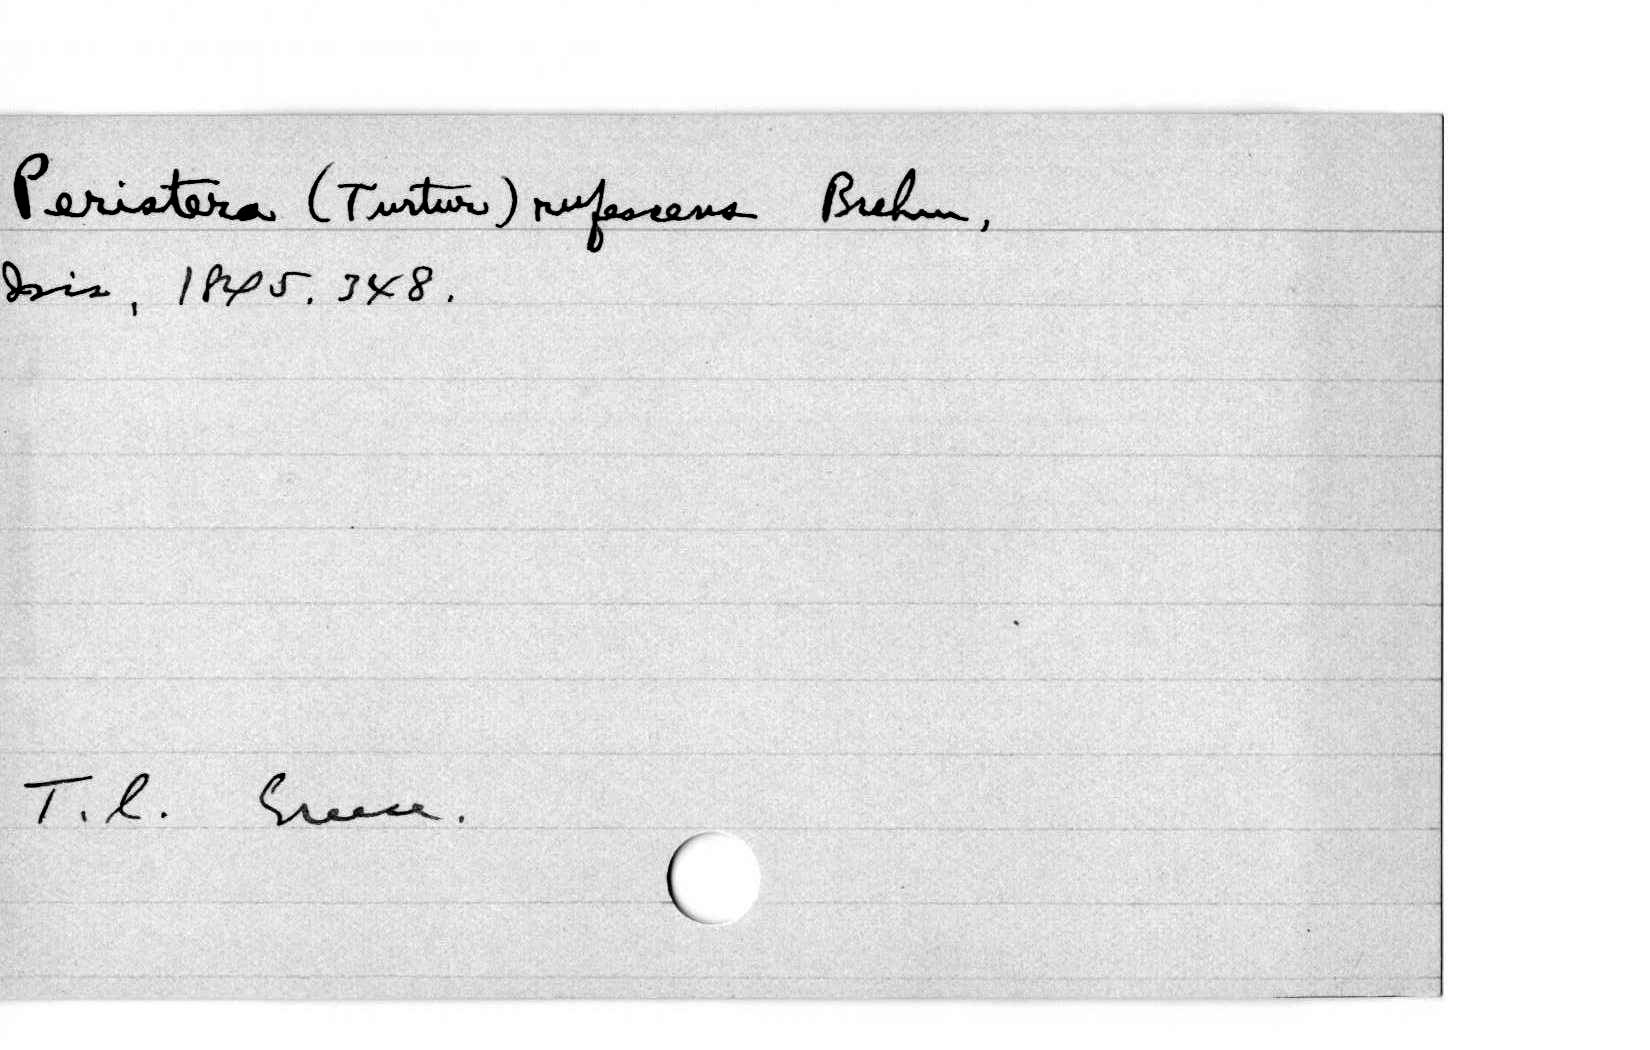 Peristera (Turtur) rufescens Brehm,
Isis, 1845. 348.
T.l. Greece.